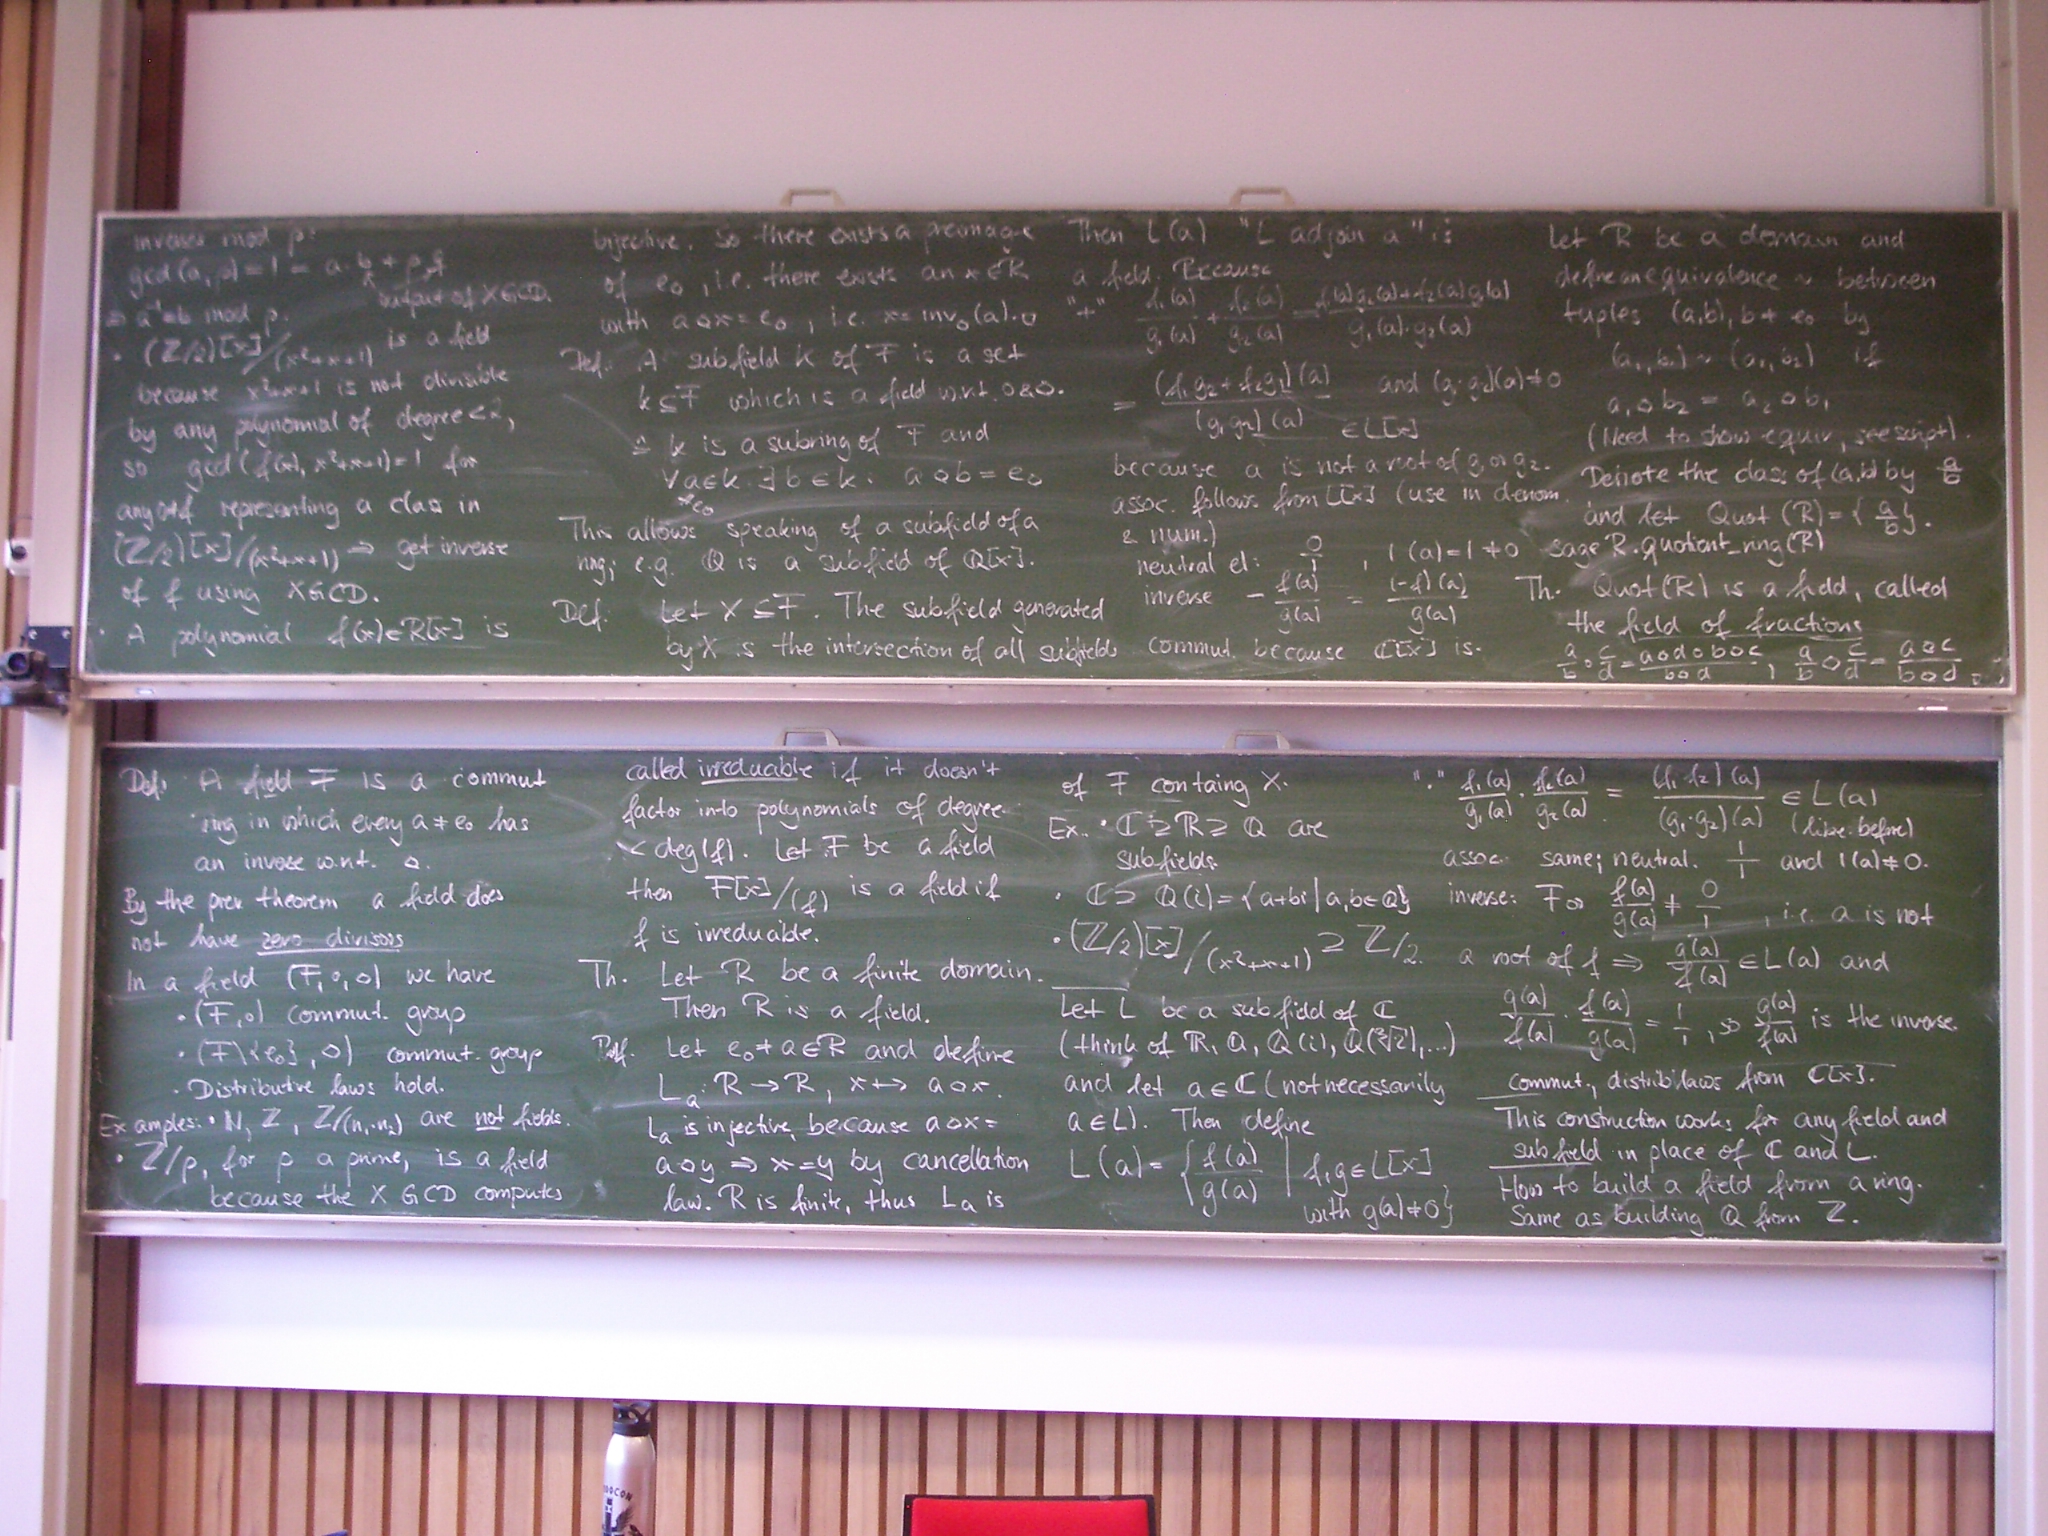 Def: A field F is a commut
ring in which every a ≠ e₀ has
an inverse w.r.t. ◇.
By the prev theorem a field does
not have zero divisors
In a field (F, ∘, ◇) we have
· (F, ∘) commut. group
· (F\{e₀}, ◇) commut. group
· Distributive laws hold.
Examples: · N, Z, Z/(n₁·n₂) are not fields.
· Z/p, for p a prime, is a field
because the XGCD computes
inverses mod p:
gcd(a,p) = 1 = a·b + p·q
output of XGCD.
⇒ a⁻¹ ≡ b mod p.
· (Z/2)[x]/(x²+x+1) is a field
because x²+x+1 is not divisible
by any polynomial of degree < 2,
so gcd(f(x), x²+x+1) = 1 for
any 0≠f representing a class in
(Z/2)[x]/(x²+x+1) ⇒ get inverse
of f using XGCD.
· A polynomial f(x) ∈ R[x] is
called irreducible if it doesn't
factor into polynomials of degree
< deg(f). Let F be a field
then F[x]/(f) is a field if
f is irreducible.
Th. Let R be a finite domain.
Then R is a field.
Prf. Let e₀ ≠ a ∈ R and define
Lₐ: R → R, x ↦ a◇x.
Lₐ is injective, because a◇x =
a◇y ⇒ x = y by cancellation
law. R is finite, thus Lₐ is
bijective. So there exists a preimage
of e◇, i.e. there exists an x ∈ R
with a◇x = e◇, i.e. x = inv◇(a). □
Def.: A subfield K of F is a set
K ⊆ F which is a field w.r.t. ∘ & ◇.
≙ K is a subring of F and
∀ a ∈ K ∃ b ∈ K: a◇b = e◇
≠e₀
This allows speaking of a subfield of a
ring; e.g. Q is a subfield of Q[x].
Def: Let X ⊆ F. The subfield generated
by X is the intersection of all subfields
of F containg X.
Ex.. · C ⊇ R ⊇ Q are
subfields
· C ⊇ Q(i) = {a+bi | a,b ∈ Q}
· (Z/2)[x]/(x²+x+1) ⊇ Z/2.
Let L be a subfield of C
(think of R, Q, Q(i), Q(∛2), ...)
and let a ∈ C (not necessarily
a ∈ L). Then define
L(a) = { f(a)/g(a) | f,g ∈ L[x]
with g(a) ≠ 0}
Then L(a) "L adjoin a" is
a field. Because
"+" f₁(a)/g₁(a) + f₂(a)/g₂(a) = (f₁(a)g₂(a)+f₂(a)g₁(a))/(g₁(a)·g₂(a))
= (f₁g₂ + f₂g₁)(a)/(g₁g₂)(a) and (g₁·g₂)(a) ≠ 0
∈ L[x]
because a is not a root of g₁ or g₂.
assoc. follows from L[x] (use in denom.
& num.)
neutral el: 0/1, 1(a) = 1 ≠ 0
inverse − f(a)/g(a) = (−f)(a)/g(a)
commut. because C[x] is.
"·" f₁(a)/g₁(a) · f₂(a)/g₂(a) = (f₁·f₂)(a)/(g₁·g₂)(a) ∈ L(a)
(like before)
assoc. same; neutral. 1/1 and 1(a) ≠ 0.
inverse: For f(a)/g(a) ≠ 0/1, i.e. a is not
a root of f ⇒ g(a)/f(a) ∈ L(a) and
g(a)/f(a) · f(a)/g(a) = 1/1, so g(a)/f(a) is the inverse.
commut., distrib. laws from C[x].
This construction works for any field and
subfield in place of C and L.
How to build a field from a ring.
Same as building Q from Z.
Let R be a domain and
define an equivalence ~ between
tuples (a,b), b ≠ e₀ by
(a₁,b₁) ~ (a₂,b₂) if
a₁◇b₂ = a₂◇b₁
(Need to show equiv, see script).
Denote the class of (a,b) by a/b
and let Quot(R) = {a/b}.
sage R.quotient_ring(R)
Th. Quot(R) is a field, called
the field of fractions
a/b ∘ c/d = (a◇d∘b◇c)/(b◇d), a/b ◇ c/d = (a◇c)/(b◇d) □